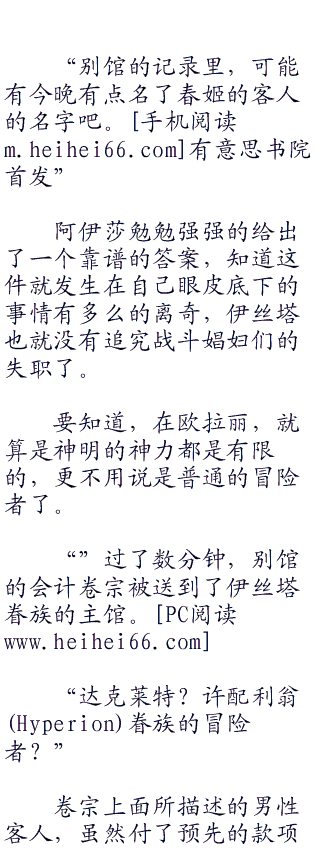 “别馆的记录里，可能
有今晚有点名了春姬的客人
的名字吧。[手机阅读
m.heihei66.com]有意思书院
首发”
阿伊莎勉勉强强的给出
了一个靠谱的答案，知道这
件就发生在自己眼皮底下的
事情有多么的离奇，伊丝塔
也就没有追究战斗娼妇们的
失职了。
要知道，在欧拉丽，就
算是神明的神力都是有限
的，更不用说是普通的冒险
者了。
“”过了数分钟，别馆
的会计卷宗被送到了伊丝塔
眷族的主馆。[PC阅读
www.heihei66.com]
“达克莱特？许配利翁
(Hyperion)眷族的冒险
者？”
卷宗上面所描述的男性
客人，虽然付了预先的款项